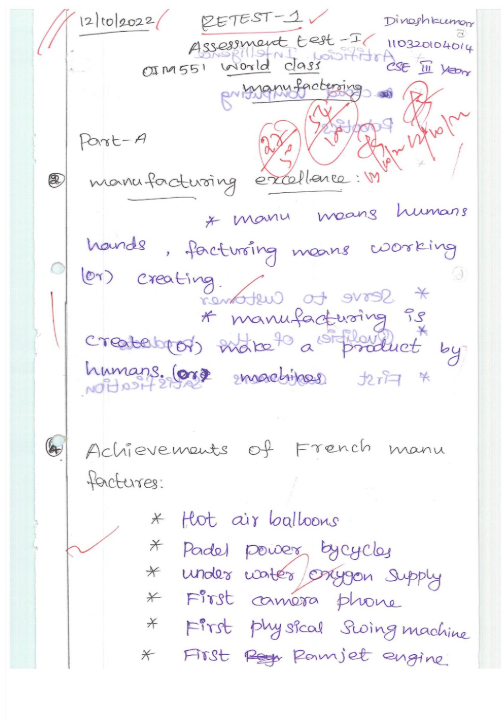 12/10/2022
RETEST-1
Dineshkumar
Assessment test-I
110320104014
OIM551 World class
CSE III Year
manufacturing
Part-A
2 manufacturing excellence:
* manu means humans
hands, facturing means working
(or) creating.
* manufacturing is
create (or) make a product by
humans. (or) machines
4 Achievements of French manu
factures:
* Hot air balloons
* Padel power bycycles
* under water oxygon Supply
* First camera phone
* First physical Swing machine
* First Ramjet engine